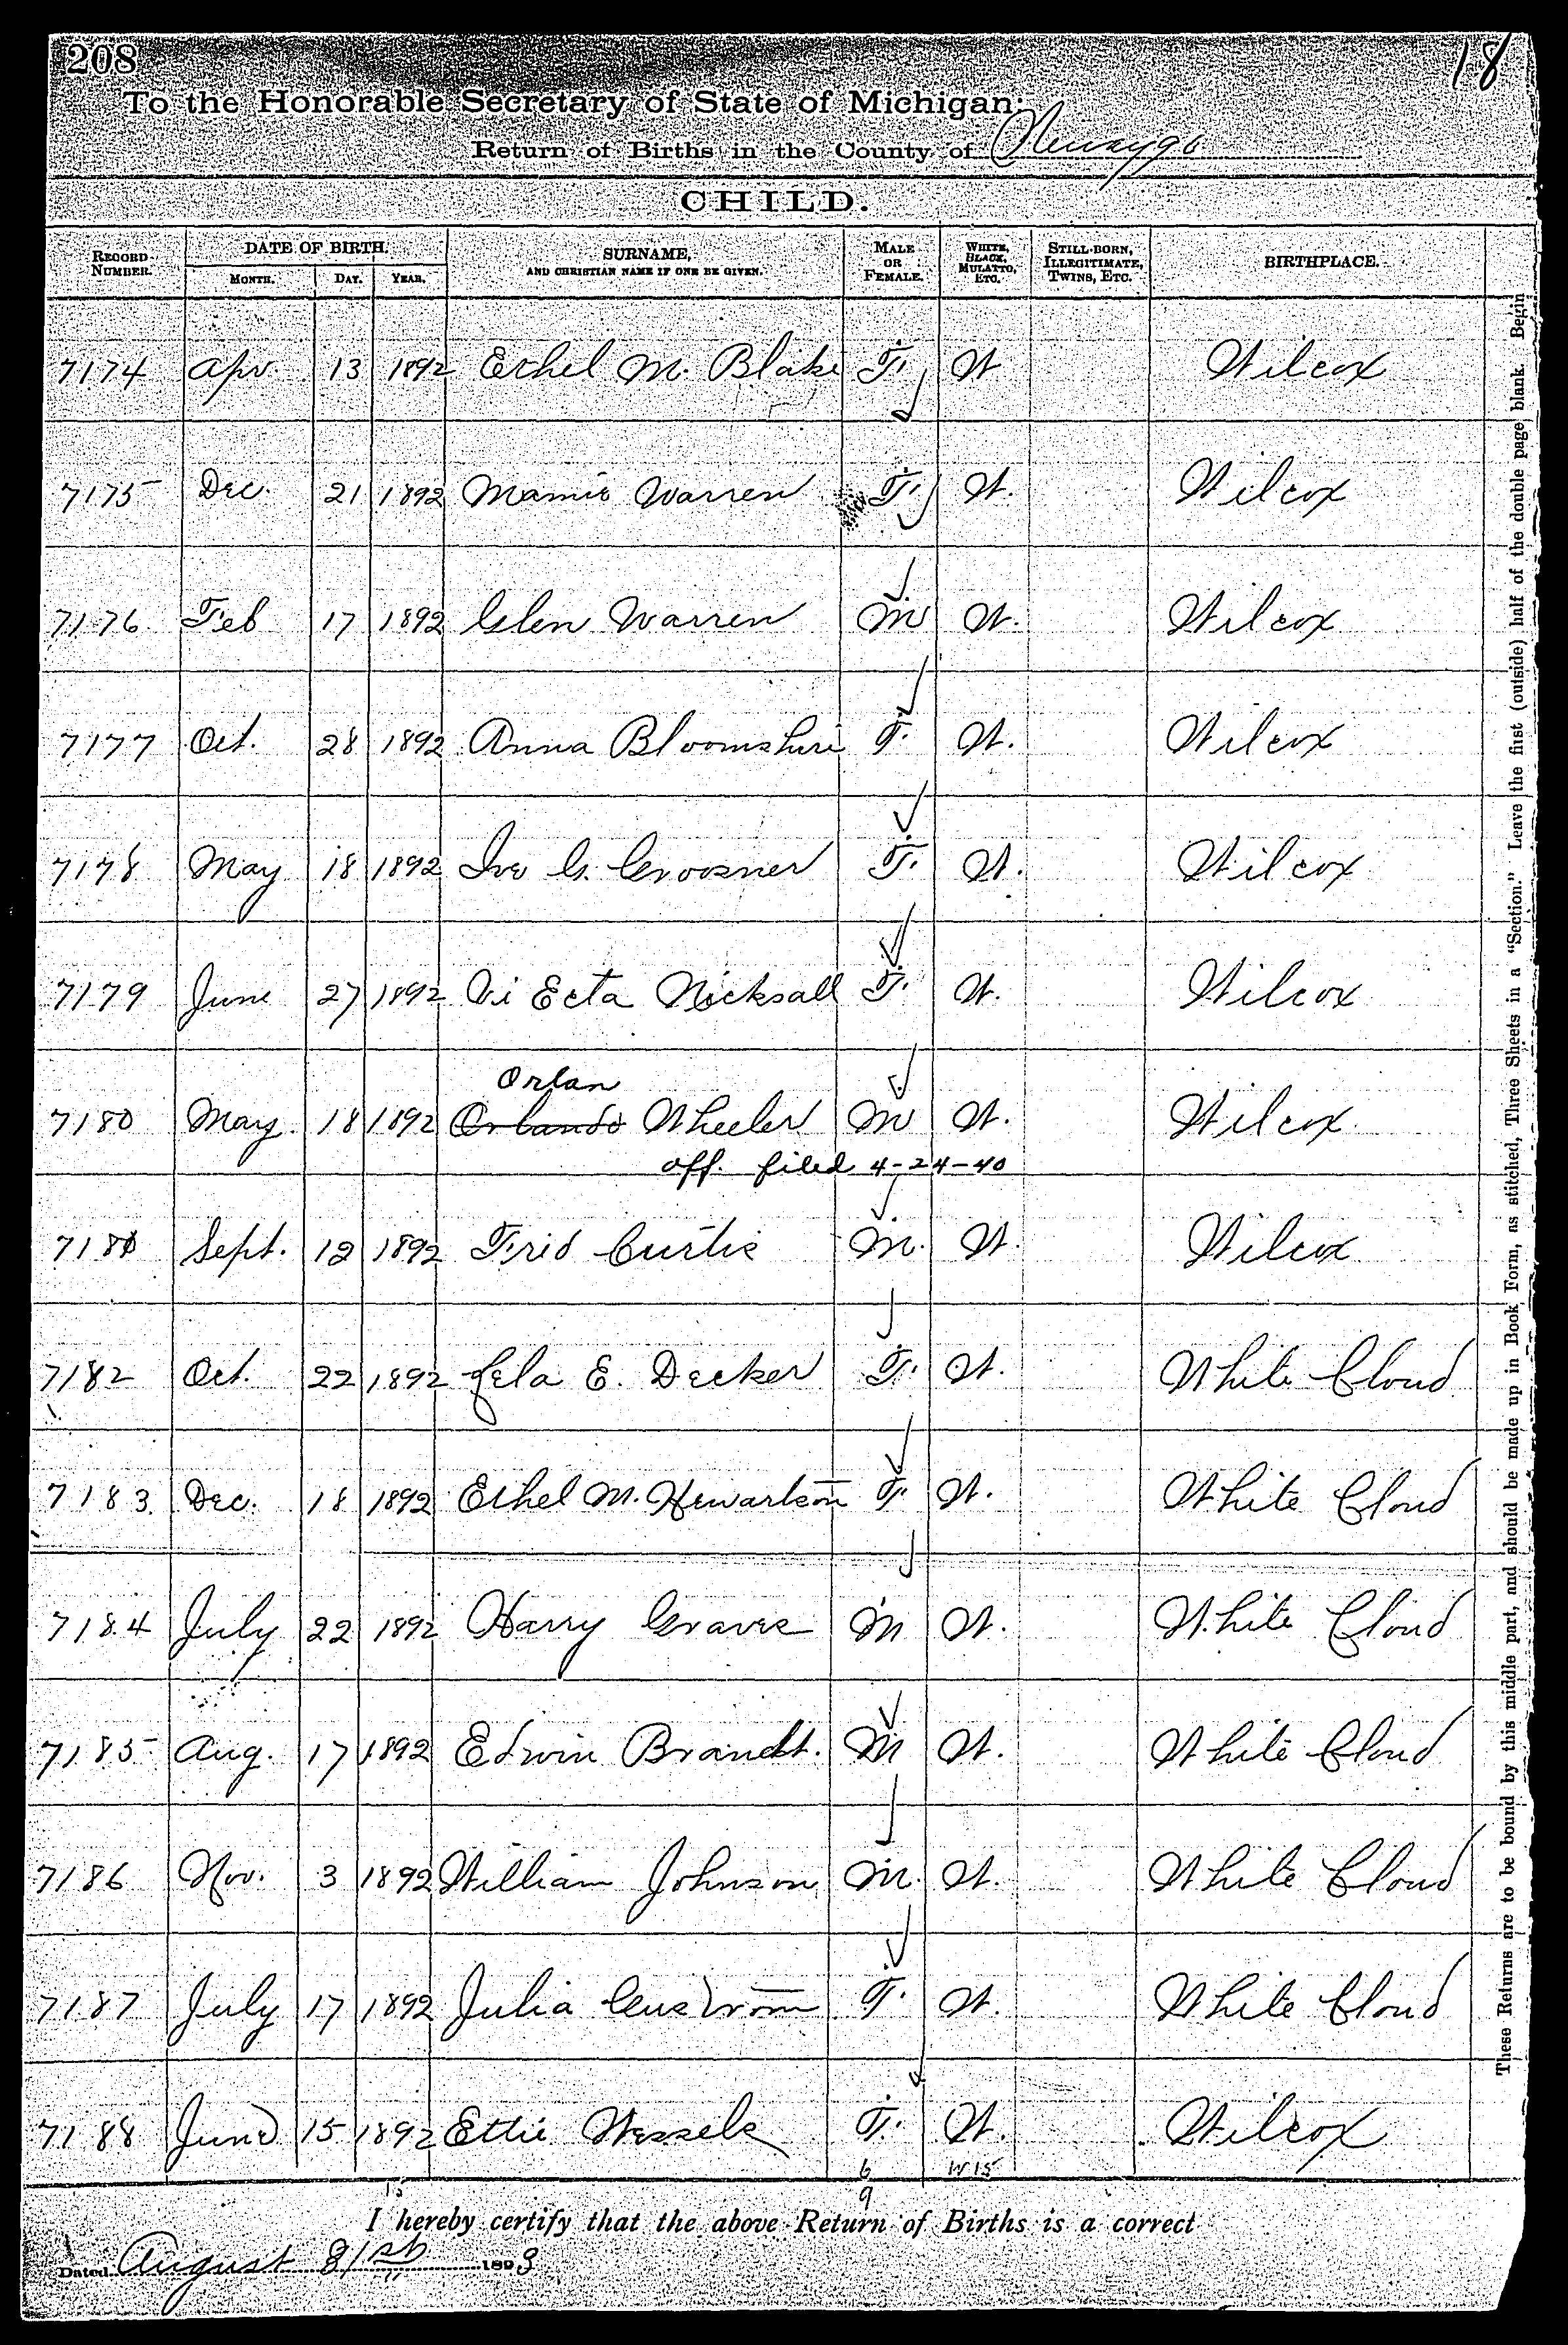 208
18
To the Honorable Secretary of State of Michigan:
Return of Births in the County of Newaygo
CHILD.
RECORD NUMBER. DATE OF BIRTH. MONTH. DAY. YEAR. SURNAME, AND CHRISTIAN NAME IF ONE BE GIVEN. MALE OR FEMALE. WHITE, BLACK, MULATTO, ETC. STILL-BORN, ILLEGITIMATE, TWINS, ETC. BIRTHPLACE.
7174 Apr 13 1892 Ethel M. Blake F. W Wilcox
7175 Dec. 21 1892 Mamie Warren F. W. Wilcox
7176 Feb 17 1892 Glen Warren M W. Wilcox
7177 Oct. 28 1892 Anna Bloomshire F. W. Wilcox
7178 May 18 1892 Iva G. Groosner F. W. Wilcox
7179 June 27 1892 Vi Ecta Nicksall F. W. Wilcox
Orlan
7180 May 18 1892 Orlando Wheeler M W. Wilcox
aff. filed 4-24-40
7181 Sept. 12 1892 Fred Curtis M. W. Wilcox
7182 Oct. 22 1892 E. Decker F. W. White Cloud
7183 Dec. 18 1892 Ethel M. Hewartson F. W. White Cloud
7184 July 22 1892 Harry Graves M W. White Cloud
7185 Aug. 17 1892 Edwin Brandt. M W. White Cloud
7186 Nov. 3 1892 William Johnson M. W. White Cloud
7187 July 17 1892 Julia F. W. White Cloud
7188 June 15 1892 Ettie Wessels F. W. Wilcox
6 W 15
9
I hereby certify that the above Return of Births is a correct
Dated August 31st 1893
These Returns are to be bound by this middle part, and should be made up in Book Form, as stitched, Three Sheets in a "Section." Leave the first (outside) half of the double page blank. Begin